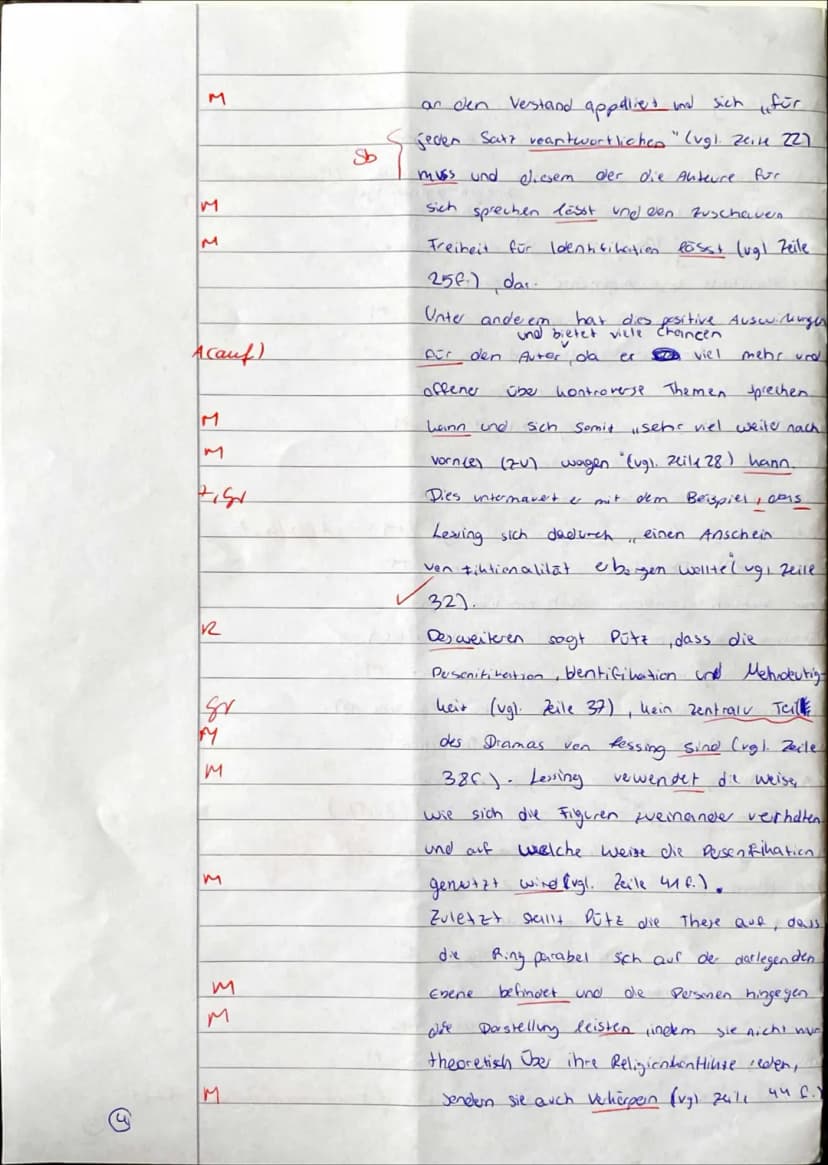 M an den Verstand appelliert und sich „für
jeden Satz veantwortlichen" (vgl. Zeile 22)
Sb muss und diesem der die Auteure für
M sich sprechen lässt und den Zuschauen
M Freiheit für Identifikation lässt (vgl Zeile
25f.), dar.
Unter anderem hat dies positive Auswirkungen
und bietet viele Chancen
A(auf) für den Autor, da er viel mehr und
offener über kontroverse Themen sprechen
M kann und sich somit „sehr viel weiter nach
M vorn(e) (zu) wagen" (vgl. Zeile 28) kann.
Dies untermauert er mit dem Beispiel, dass
Lessing sich dadurch „einen Anschein
von Fiktionalität eborgen wollte" (vgl Zeile
32).
R Desweiteren sagt Pütz, dass die
Personifikation, Identifikation und Mehrdeutig-
Gr keit (vgl. Zeile 37), kein zentraler Teil
M des Dramas von Lessing sind (vgl. Zeile
M 38f.). Lessing verwendet die Weise,
wie sich die Figuren zueinander verhalten
und auf welche Weise die Personifikation
M genutzt wird (vgl. Zeile 41f.).
Zuletzt stellt Pütz die These auf, dass
die Ring parabel sich auf der darlegenden
M Ebene befindet und die Personen hingegen
M die Darstellung leisten, indem sie nicht nur
theoretisch über ihre Religionskonflikte reden,
M sondern sie auch verkörpern (vgl Zeile 44f.)
4